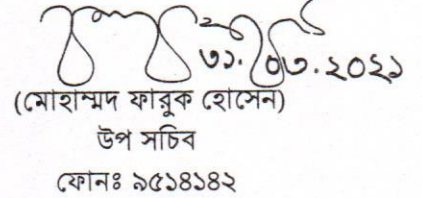 ৩১.০৩.২০২১
(মোহাম্মদ ফারুক হোসেন)
উপ সচিব
ফোনঃ ৯৫১৪১৪২